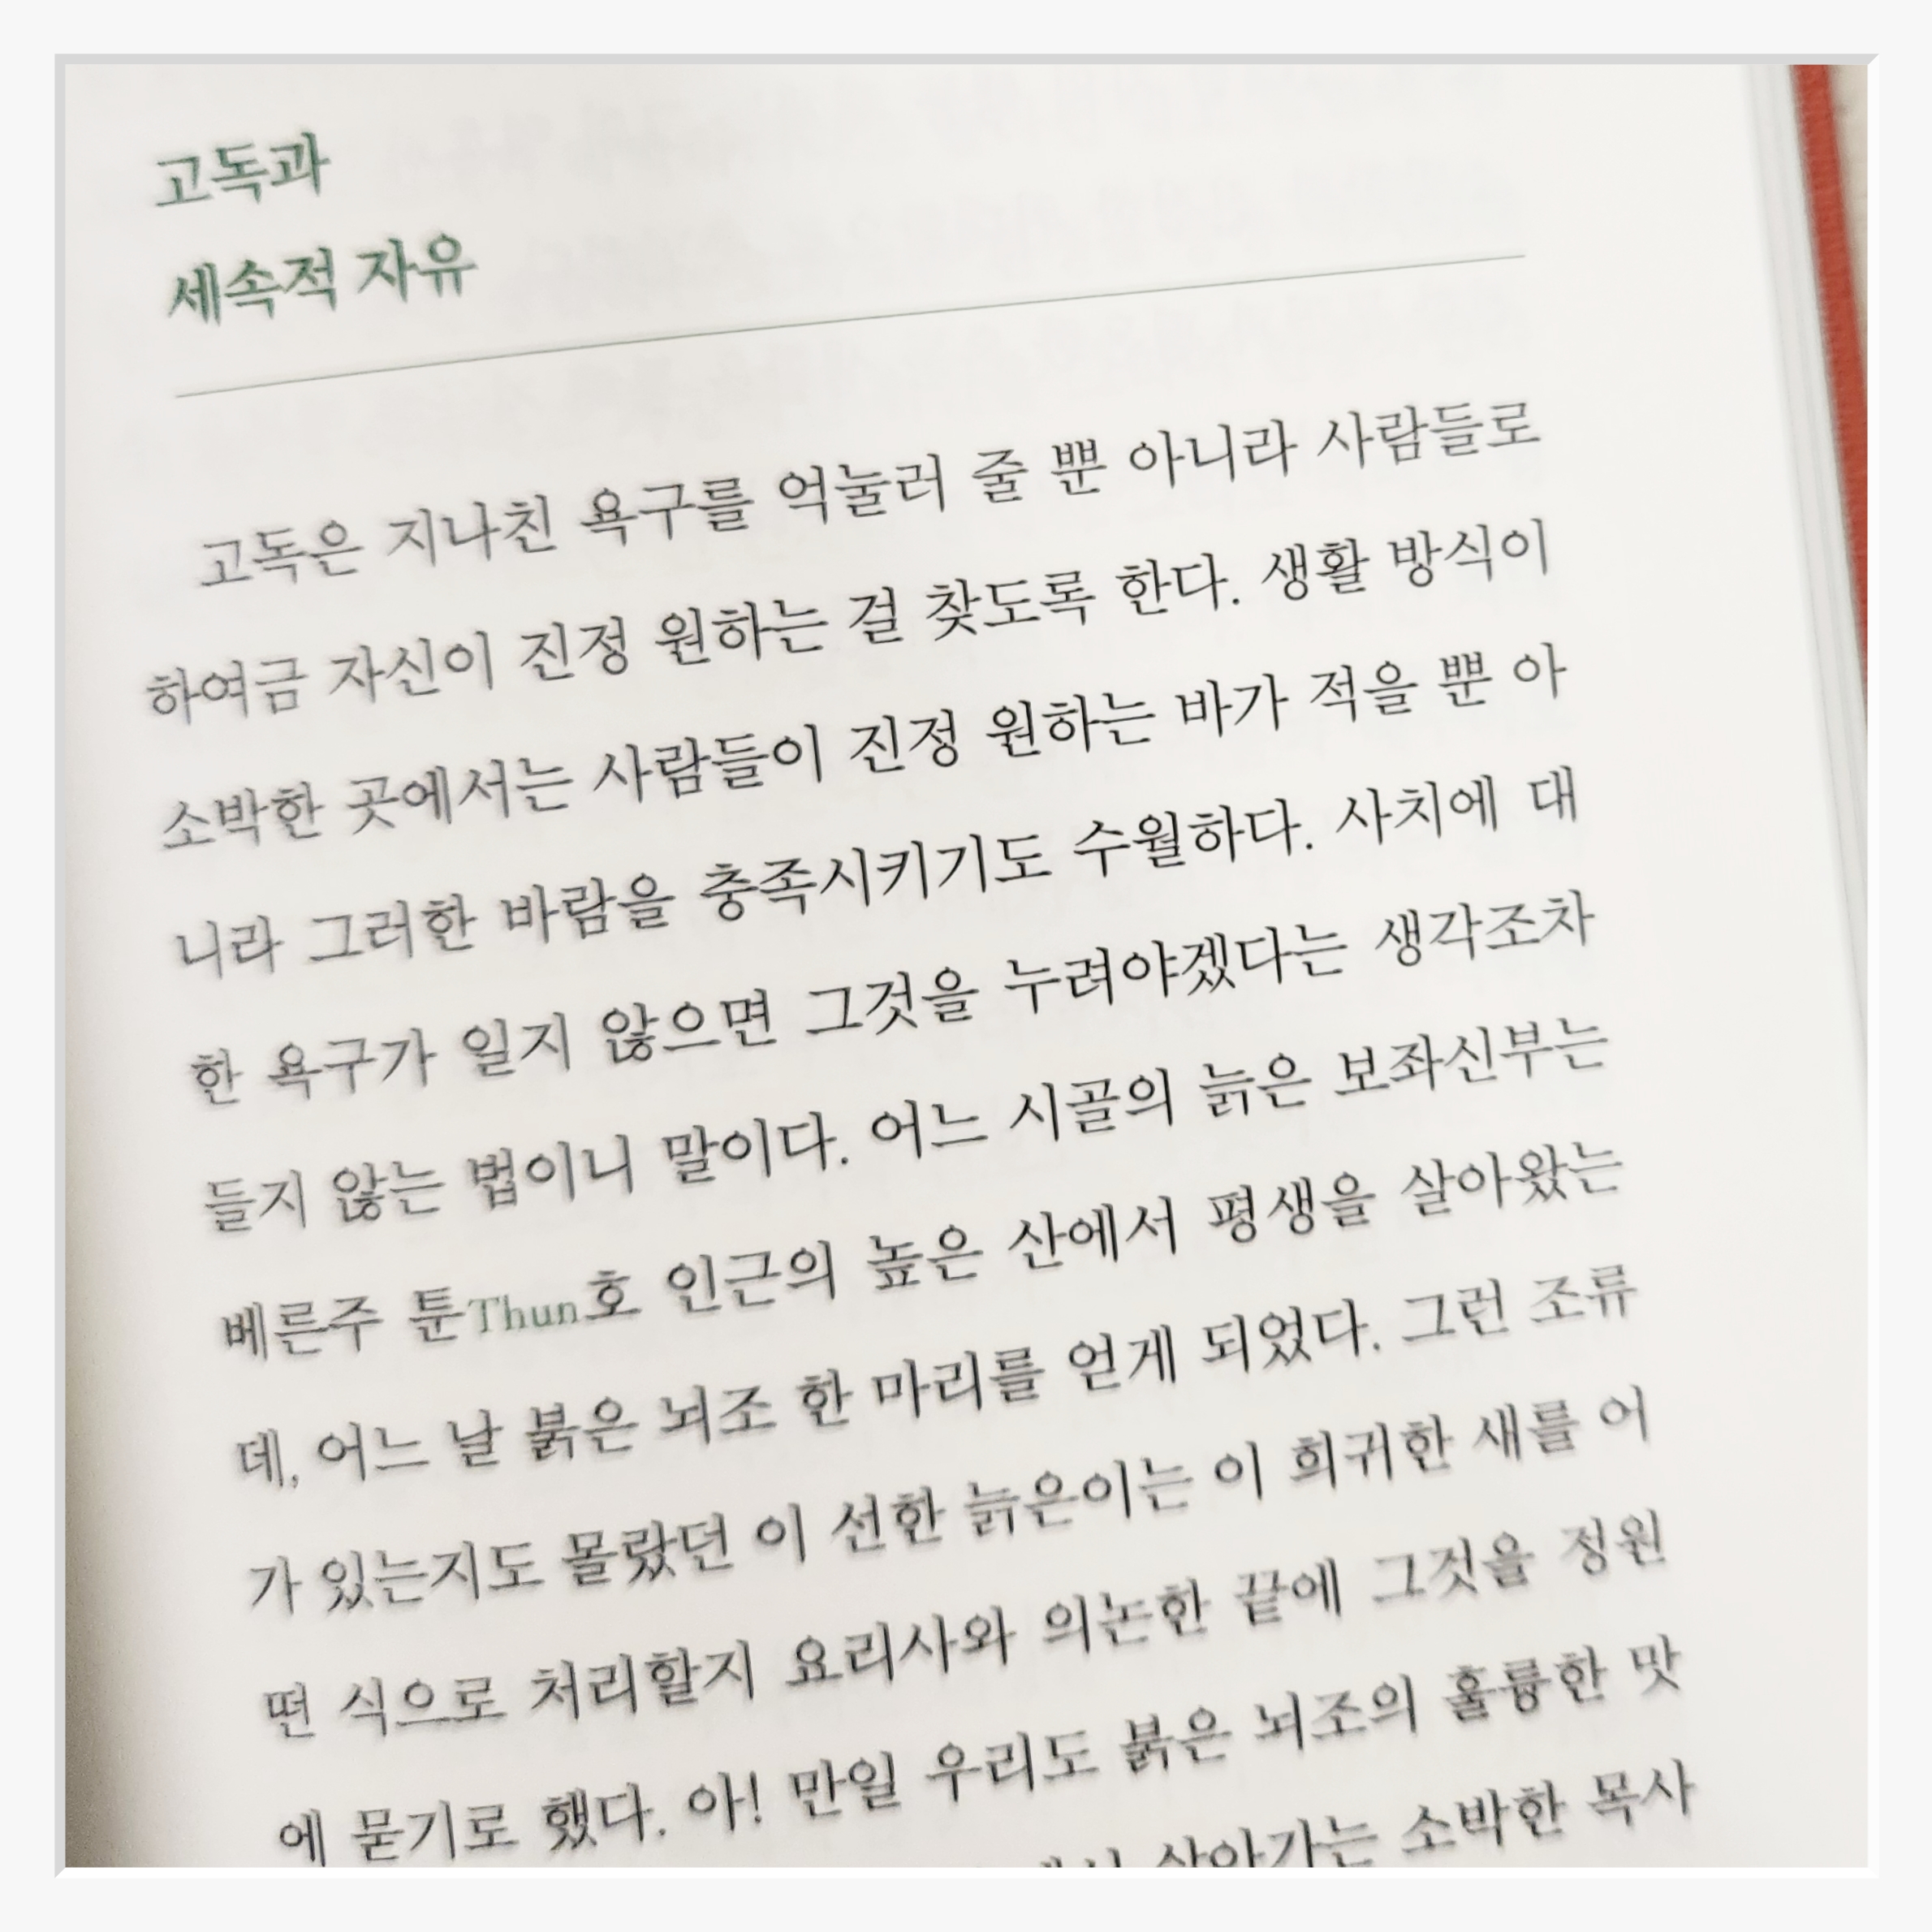 고독과
세속적 자유
고독은 지나친 욕구를 억눌러 줄 뿐 아니라 사람들로
하여금 자신이 진정 원하는 걸 찾도록 한다. 생활 방식이
소박한 곳에서는 사람들이 진정 원하는 바가 적을 뿐 아
니라 그러한 바람을 충족시키기도 수월하다. 사치에 대
한 욕구가 일지 않으면 그것을 누려야겠다는 생각조차
들지 않는 법이니 말이다. 어느 시골의 늙은 보좌신부는
베른주 툰Thun호 인근의 높은 산에서 평생을 살아왔는
데, 어느 날 붉은 뇌조 한 마리를 얻게 되었다. 그런 조류
가 있는지도 몰랐던 이 선한 늙은이는 이 희귀한 새를 어
떤 식으로 처리할지 요리사와 의논한 끝에 그것을 정원
에 묻기로 했다. 아! 만일 우리도 붉은 뇌조의 훌륭한 맛
살아가는 소박한 목사